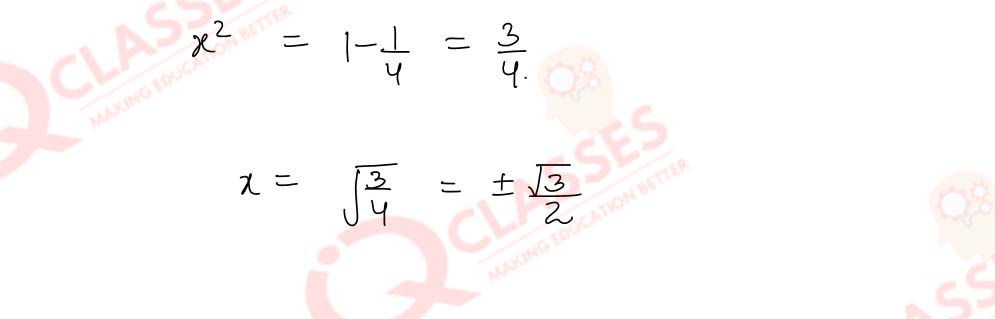 x² = 1 - 1/4 = 3/4.
x = √(3/4) = ± √3/2
QCLASSES
MAKING EDUCATION BETTER
iQCLASSES
MAKING EDUCATION BETTER
ASS